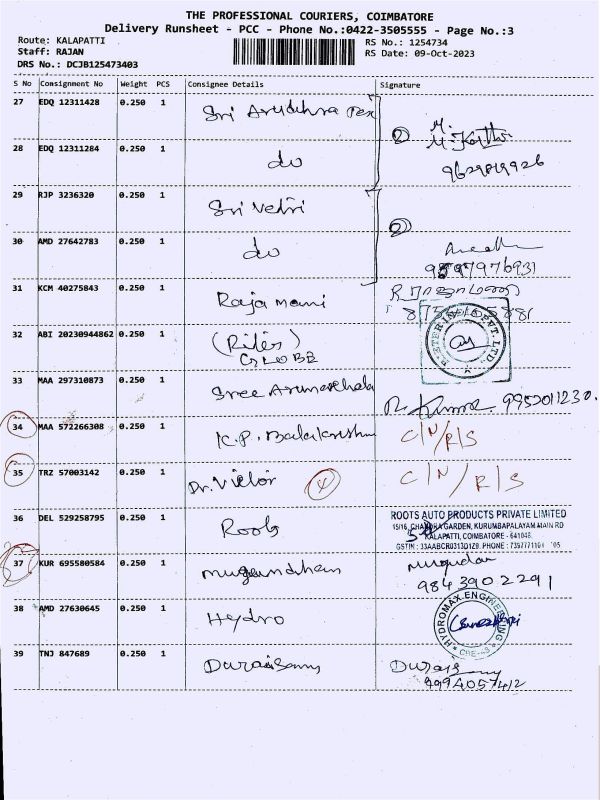 THE PROFESSIONAL COURIERS, COIMBATORE
Delivery Runsheet - PCC - Phone No.:0422-3505555 - Page No.:3
Route: KALAPATTI
Staff: RAJAN
DRS No.: DCJB125473403
RS No.: 1254734
RS Date: 09-Oct-2023
S No Consignment No Weight PCS Consignee Details Signature
27 EDQ 12311428 0.250 1 Sri Arudhra Tex
28 EDQ 12311284 0.250 1 do
2 M. M. 
29 RJP 3236320 0.250 1 Sri Vetri
30 AMD 27642783 0.250 1 do
2
31 KCM 40275843 0.250 1 Raja mani
32 ABI 20230944862 0.250 1 (Rites) GLOBE
33 MAA 297310873 0.250 1 Sree Arunachala R. Kumar 9952011230.
34 MAA 572266308 0.250 1 K.P. Balakrishn C/N/R/S
35 TRZ 57003142 0.250 1 Dr. Victor 4 C/N/R/S
36 DEL 529258795 0.250 1 Roots
ROOTS AUTO PRODUCTS PRIVATE LIMITED
15/16, CHANDRA GARDEN, KURUMBAPALAYAM MAIN RD
KALAPATTI, COIMBATORE - 641048.
37 KUR 695580584 0.250 1 mugundhan
9843902291
38 AMD 27630645 0.250 1 Hydro
HYDROMAX ENGINEERING
39 TNJ 847689 0.250 1 Duraisamy
9994057412